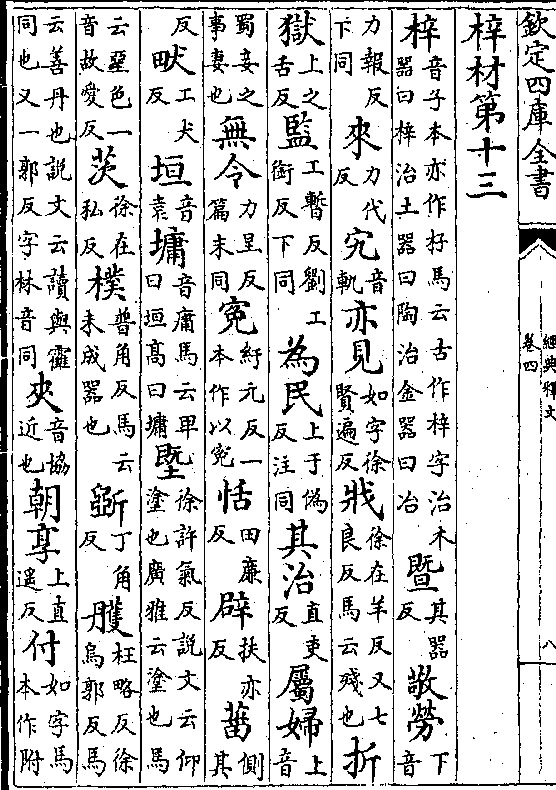 欽定四庫全書
經典釋文
卷四
八
梓材第十三
梓音子本亦作杍馬云古作梓字治木器曰梓治土器曰陶治金器曰冶暨其器反敬勞下音
力報反下同來力代反宄音軌亦見如字徐賢遍反戕徐在羊反又七良反馬云殘也折
獄上之舌反監工暫反劉工銜反下同為民上于偽反注同其治直吏反屬婦上音
蜀妾之事妻也無令力呈反篇末同寃紆元反一本作以寃恬田廉反辟扶亦反菑側其
反畎工犬反垣音袁墉音庸馬云卑曰垣高曰墉塈徐許氣反說文云仰塗也廣雅云塗也馬
云堊色一音故愛反茨徐在私反樸普角反馬云未成器也斲丁角反雘枉略反徐烏郭反馬
云善丹也說文云讀與霍同也又一郭反字林音同夾音協近也朝享上直遥反付如字馬本作附